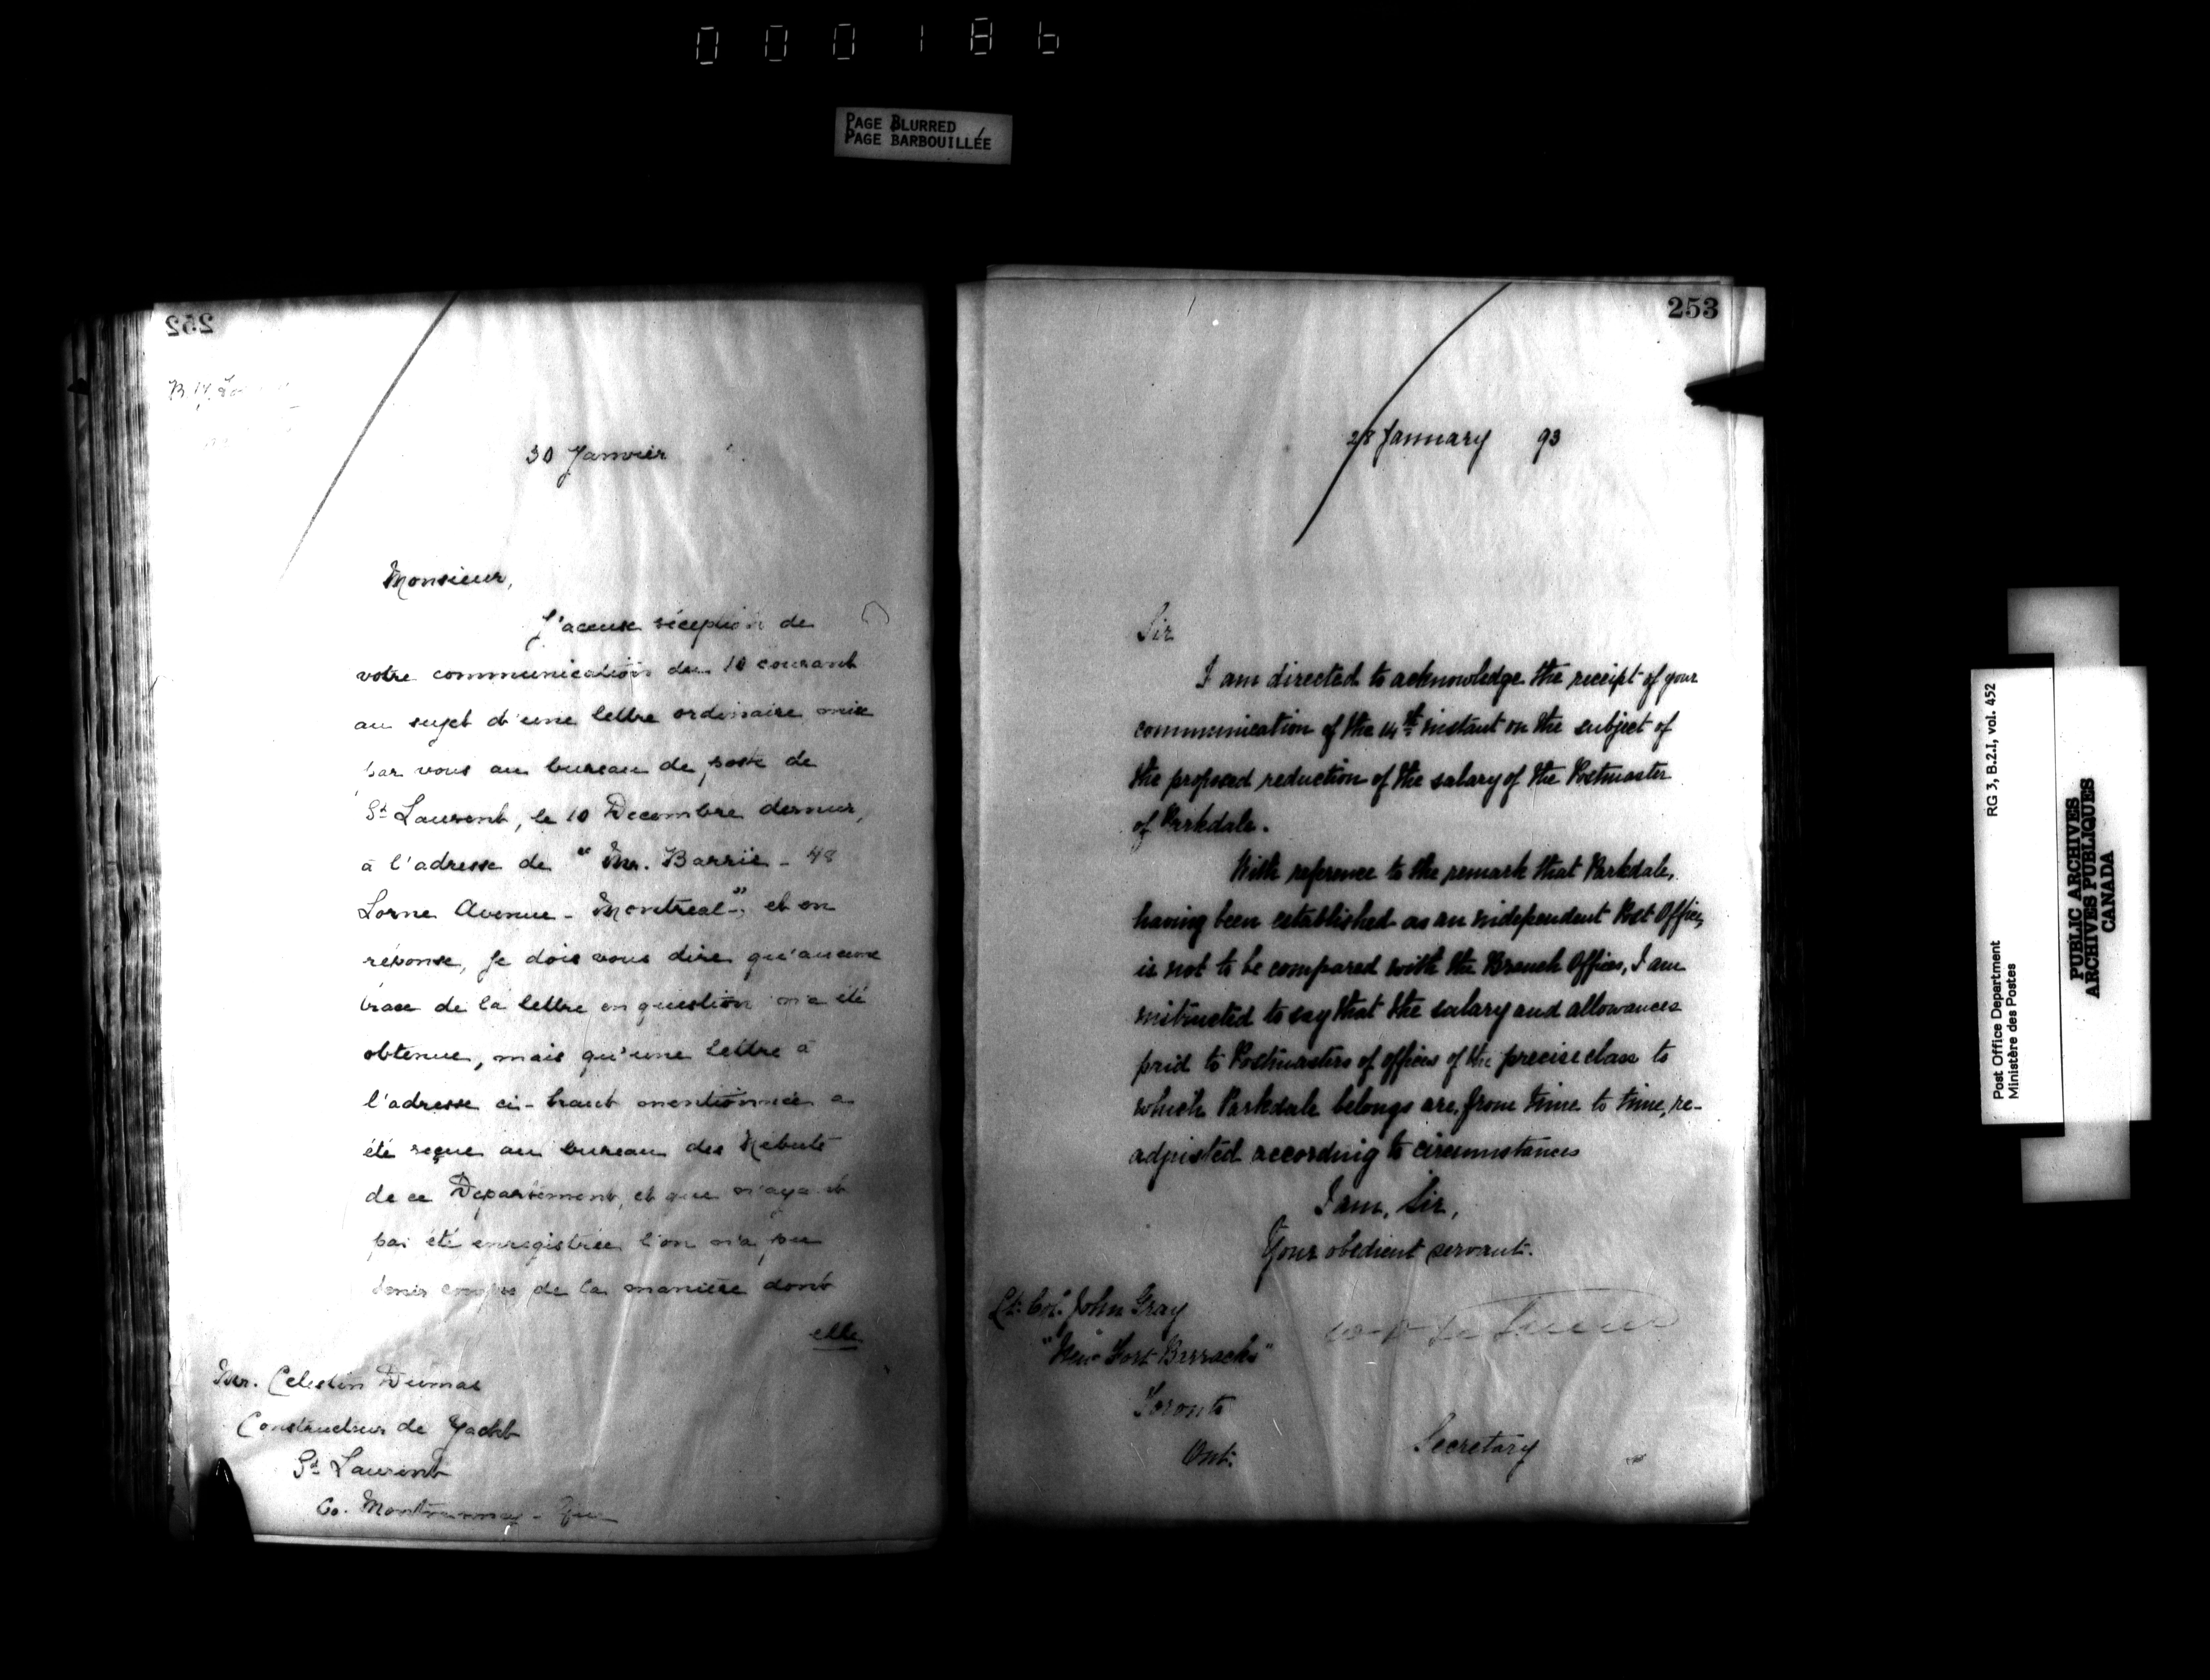 000186
PAGE BLURRED
PAGE BARBOUILLÉE
252
30 Janvier
Monsieur,
J'accuse réception de
votre communication du 10 courant
au sujet d'une lettre ordinaire mise
par vous au bureau de poste de
St Laurent, le 10 Decembre dernier,
à l'adresse de "Mr. Barrie - 48
Lorne Avenue - Montreal", et en
réponse, je dois vous dire qu'aucune
trace de la lettre en question n'a été
obtenue, mais qu'une lettre à
l'adresse ci-haut mentionnée a
été reçue au bureau des Rebuts
de ce Departement, et que n'ayant
pas été enregistrée l'on n'a pu
tenir compte de la manière dont
elle
Mr. Celestin Dumas
Constructeur de Yacht
St Laurent
Co. Montmorency - Que
253
28 January 93
Sir
I am directed to acknowledge the receipt of your
communication of the 14th instant on the subject of
the proposed reduction of the salary of the Postmaster
of Parkdale.
With reference to the remark that Parkdale,
having been established as an independent Post Office,
is not to be compared with the Branch Offices, I am
instructed to say that the salary and allowances
paid to Postmasters of offices of the precise class to
which Parkdale belongs are, from time to time, re-
adjusted according to circumstances
I am, Sir,
Your obedient servant.
Lt. Col. John Gray
"New Fort Barracks"
Toronto
Ont:
Secretary
Post Office Department
Ministère des Postes
RG 3, B.2.I, vol. 452
PUBLIC ARCHIVES
ARCHIVES PUBLIQUES
CANADA